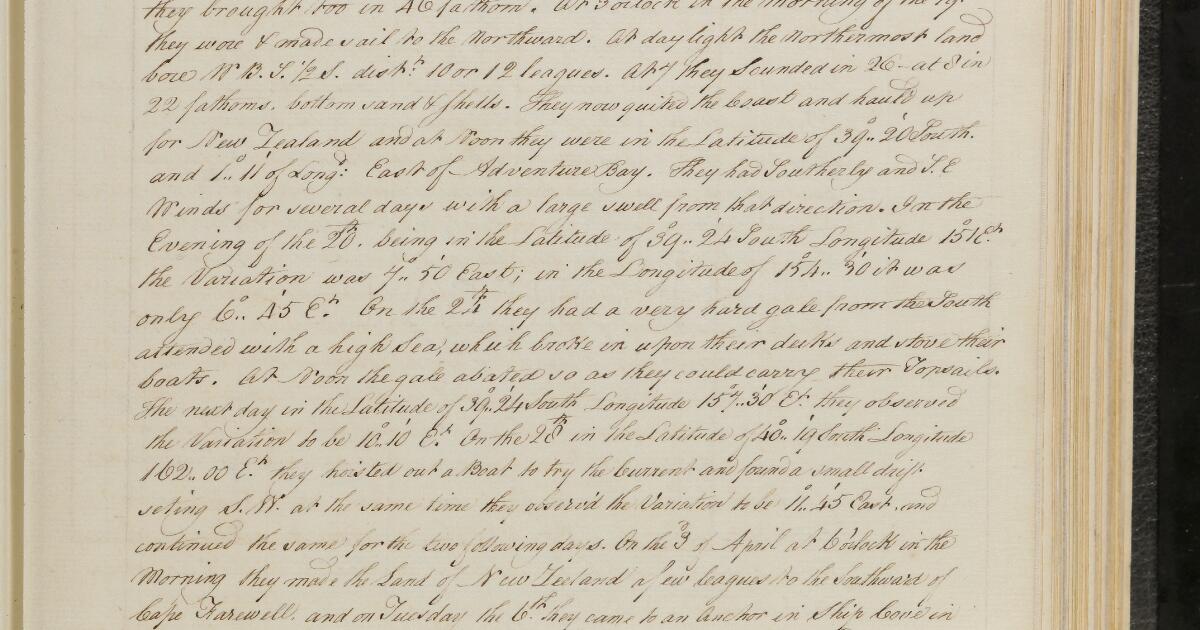 they brought too in 46 fathom. At 3 oclock in the morning of the 19th
they wore & made sail to the Northward. At day light the Northermost land
bore W B. S. ½ S. distce 10 or 12 leagues. At 7 they Sounded in 26 – at 8 in
22 fathoms. bottom sand & shells. They now quited the Coast and hauld up
for New Zealand and at Noon they were in the Latitude of 39°.. 20' South.
and 1°.. 11' of Longd: East of Adventure Bay. They had Southerly and S. E
Winds for several days with a large swell from that direction. In the
Evening of the 20th. being in the Latitude of 39°.. 24' South Longitude 151° Et
the Variation was 7°.. 50' East; in the Longitude of 154°.. 30' it was
only 6°.. 45 Et. On the 24th they had a very hard gale from the South
attended with a high Sea, which broke in upon their decks and stove their
boats. At Noon the gale abated so as they could carry their Topsails.
The next day in the Latitude of 39°.. 24' South Longitude 157°.. 30' Et. they observed
the Variation to be 10°.. 10' Et. On the 28th in the Latitude of 40°.. 19' South Longitude
162°.. 00 Et they hoisted out a Boat to try the Current and found a small drift
seting S. W. at the same time they observ'd the Variation to be 11°.. 45' East. and
continued the same for the two following days. On the 3d of April at 6 oclock in the
Morning they made the Land of New Zeeland a few leagues to the Southward of
Cape Farewell. and on Tuesday the 6th they came to an Anchor in Ship Cove in